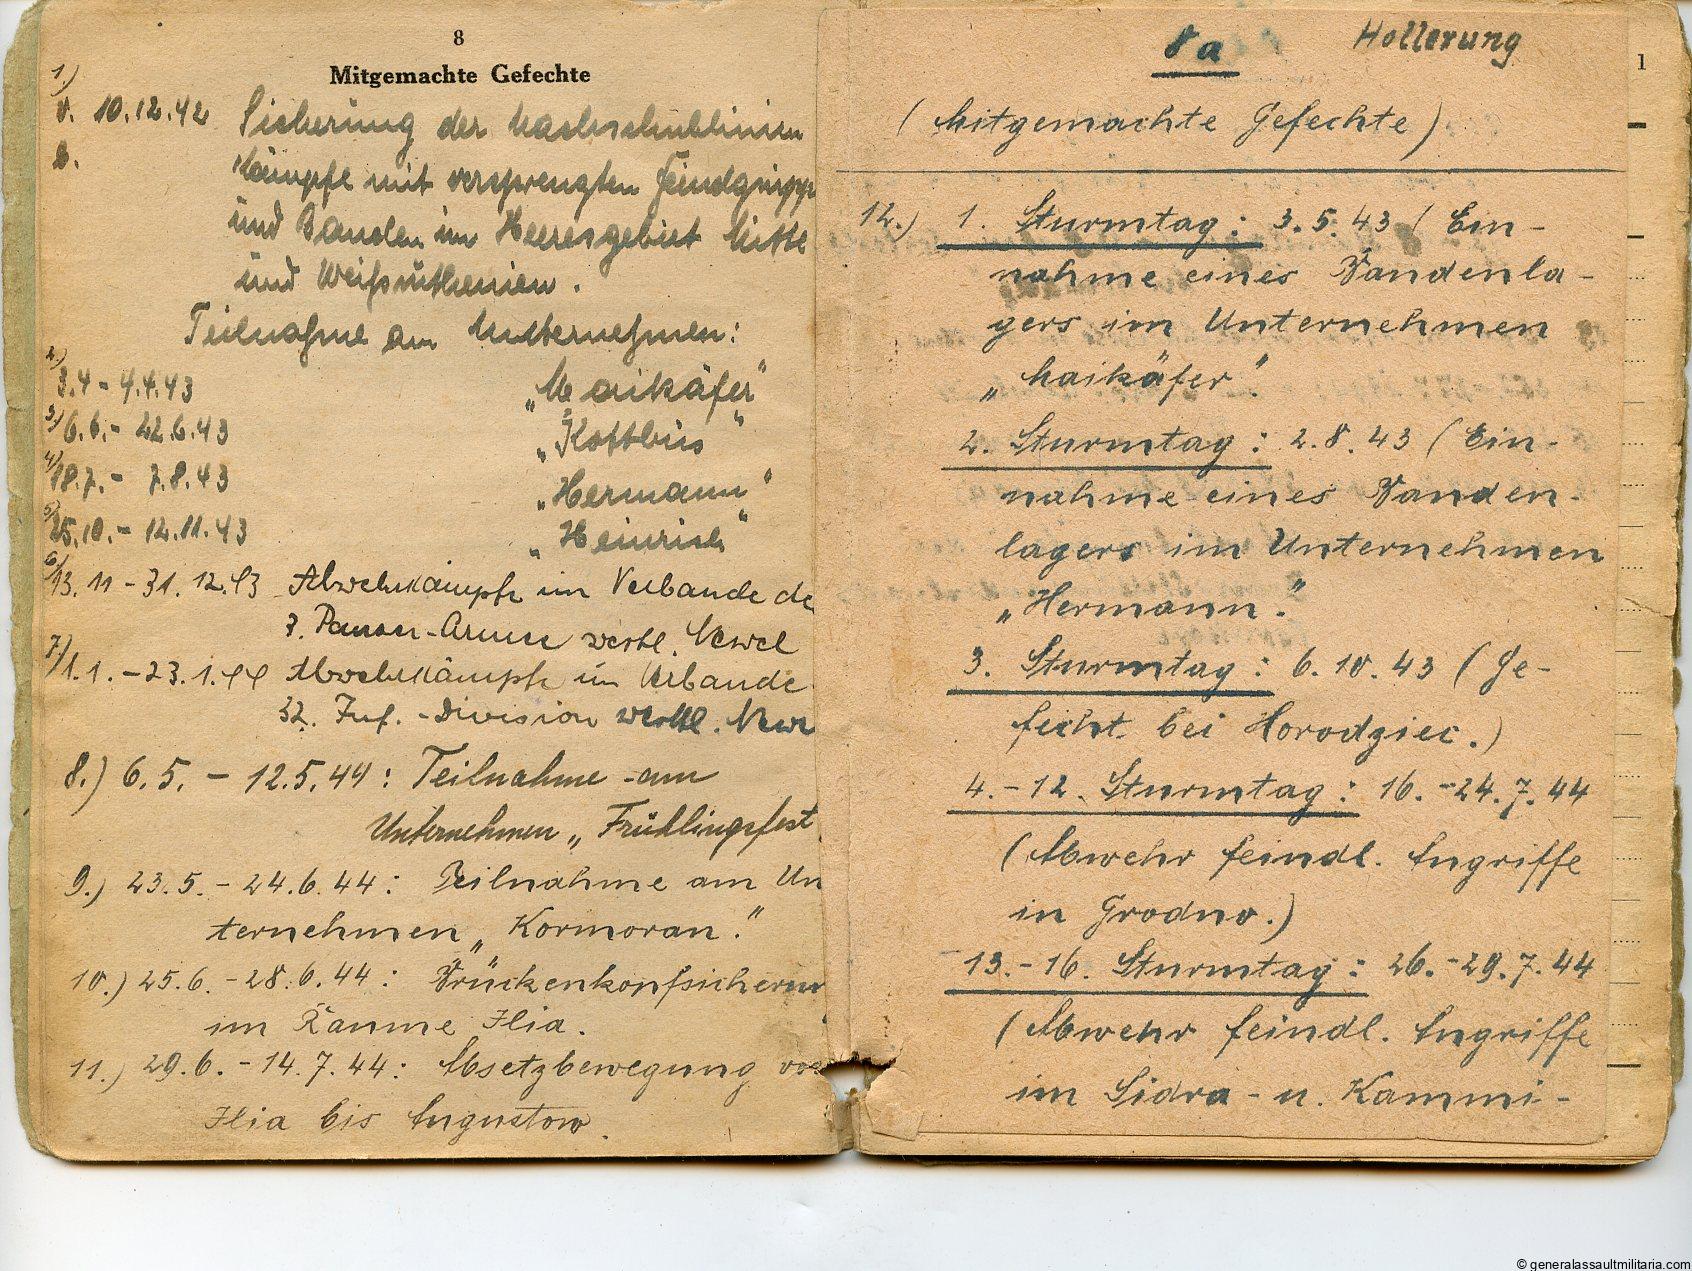 8
Mitgemachte Gefechte
1.)
v. 10.12.42 Sicherung der Nachschublinien
b. Kämpfe mit versprengten Feindgrupp
und Banden im Heeresgebiet Mitte
und Weißruthenien.
Teilnahme an Unternehmen:
2.)
3.4 - 4.4.43 „Maikäfer"
3.) 6.6. - 22.6.43 „Kottbus"
4.) 18.7. - 7.8.43 „Hermann"
5.) 25.10. - 12.11.43 „Heinrich"
6.) 13.11 - 31.12.43 Abwehrkämpfe im Verbande de
3. Panzer-Armee westl. Newel
7.) 1.1. - 23.1.44 Abwehrkämpfe im Verbande
32. Inf. - Division westl. Newe
8.) 6.5. - 12.5.44: Teilnahme am
Unternehmen „Frühlingsfest
9.) 23.5. - 24.6.44: Teilnahme am Un
ternehmen „Kormoran."
10.) 25.6. - 28.6.44: Brückenkopfsicherun
im Raume Ilia.
11.) 29.6. - 14.7.44: Absetzbewegung vo
Ilia bis Augustow.
8a Hollerung
1
(Mitgemachte Gefechte)
12.) 1. Sturmtag: 3.5.43 (Ein-
nahme eines Bandenla-
gers im Unternehmen
„Maikäfer".
2. Sturmtag: 2.8.43 (Ein-
nahme eines Banden-
lagers im Unternehmen
„Hermann."
3. Sturmtag: 6.10.43 (Ge-
fecht bei Horodziec.)
4.-12. Sturmtag: 16.-24.7.44
(Abwehr feindl. Angriffe
in Grodno.)
13.-16. Sturmtag: 26.-29.7.44
(Abwehr feindl. Angriffe
im Sidra- u. Kammi-
© generalassaultmilitaria.com